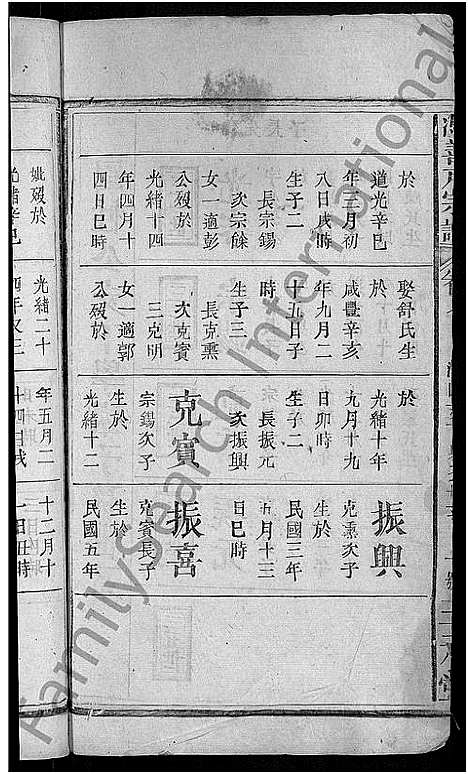 於
道光辛巳
年三月初
八日戌時
生子二
長宗錫
次宗餘
女一適彭
公歿於
光緒十四
年四月十
四日巳時
娶舒氏生
於
咸豐辛亥
年九月二
十五日子
生子三
長克熏
次克賓
三克明
女一適郭
公歿於
於
光緒十年
九月十九
日卯時
生子二
長振元
次振興
克賓
宗錫次子
生於
光緒十二
振興
克熏次子
生於
民國三年
五月十三
日巳時
振喜
克賓長子
生於
民國五年
妣歿於
光緒辛巳
光緒二十
四年又三
年五月二
十四日戌
十二月十
一日丑時
FamilySearch International